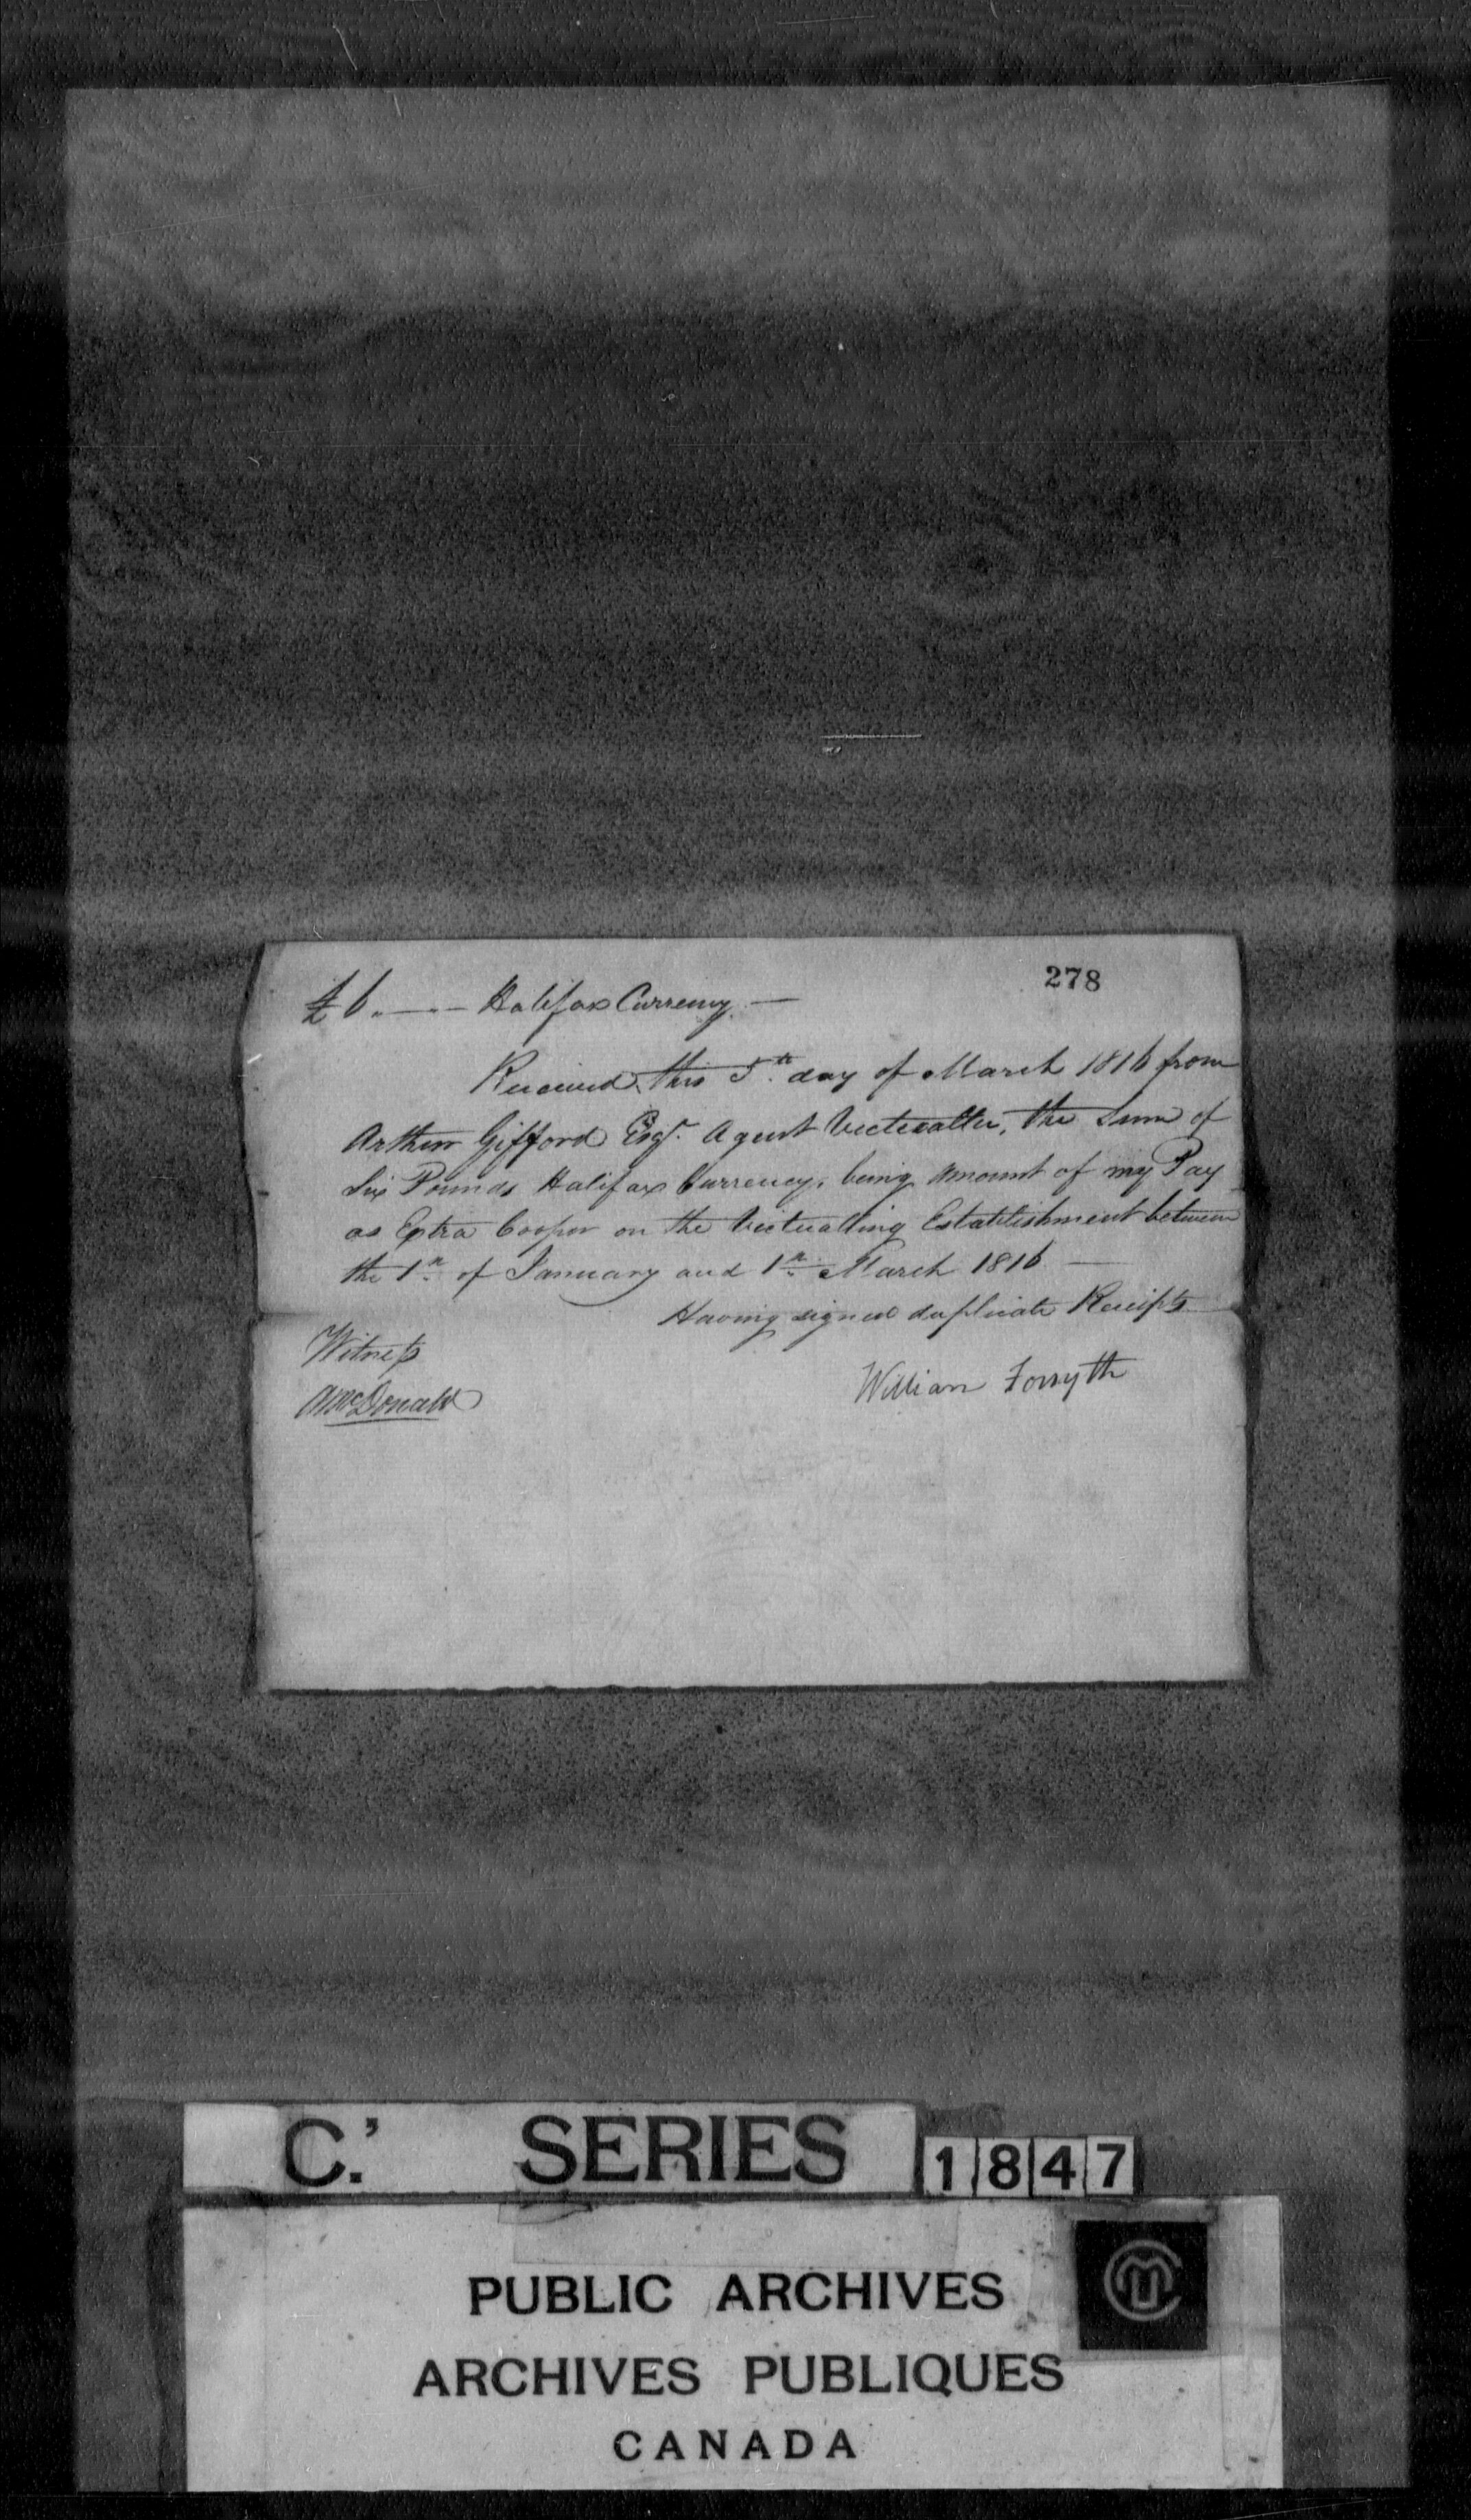 278
£6. — . — Halifax Currency. —
Received this 5th day of March 1816 from
Arthur Gifford Esqr. Agent Victualler, the Sum of
Six Pounds Halifax Currency, being Amount of my Pay
as Extra Cooper on the Victualling Establishment between
the 1st of January and 1st March 1816 —
Having signed duplicate Receipts
Witness
William Forsyth
McDonald
C.' SERIES 1847
PUBLIC ARCHIVES
ARCHIVES PUBLIQUES
CANADA